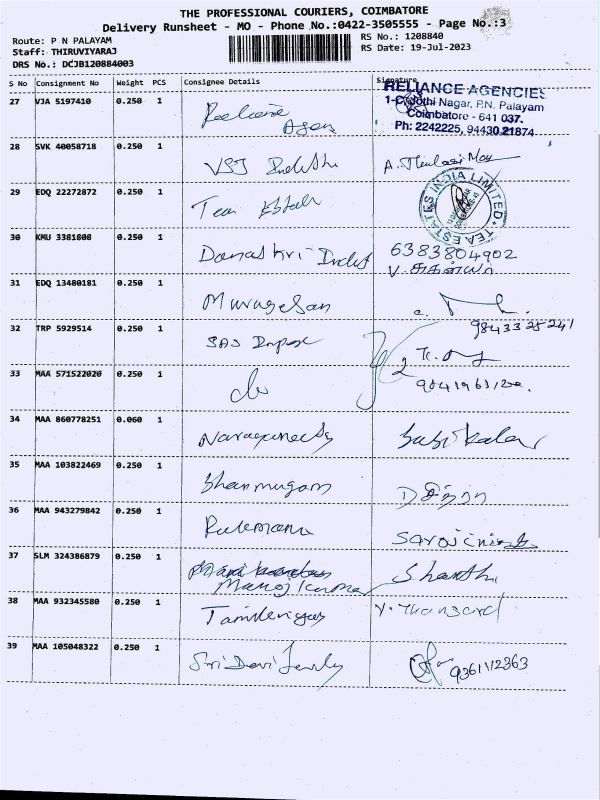 THE PROFESSIONAL COURIERS, COIMBATORE
Delivery Runsheet - MO - Phone No.:0422-3505555 - Page No.:3
Route: P N PALAYAM
RS No.: 1208840
Staff: THIRUVIYARAJ
RS Date: 19-Jul-2023
DRS No.: DCJB120884003
S No Consignment No Weight PCS Consignee Details Signature
RELIANCE AGENCIES
1-C, Jothi Nagar, P.N. Palayam
Coimbatore - 641 037.
Ph: 2242225, 94430 21874
27 VJA 5197410 0.250 1 Reliance
Agen
28 SVK 40058718 0.250 1 VSJ
29 EDQ 22272872 0.250 1 Tea Estate
TEA ESTATES INDIA LIMITED
30 KMU 3381808 0.250 1 6383804902
31 EDQ 13480181 0.250 1 Murugesan
32 TRP 5929514 0.250 1 SAS
33 MAA 571522020 0.250 1
34 MAA 860778251 0.060 1
35 MAA 103822469 0.250 1 Shanmugam
36 MAA 943279842 0.250 1
37 SLM 324386879 0.250 1 Shanthi
Manoj Kumar
38 MAA 932345580 0.250 1
39 MAA 105048322 0.250 1 Sri Devi 9361112363